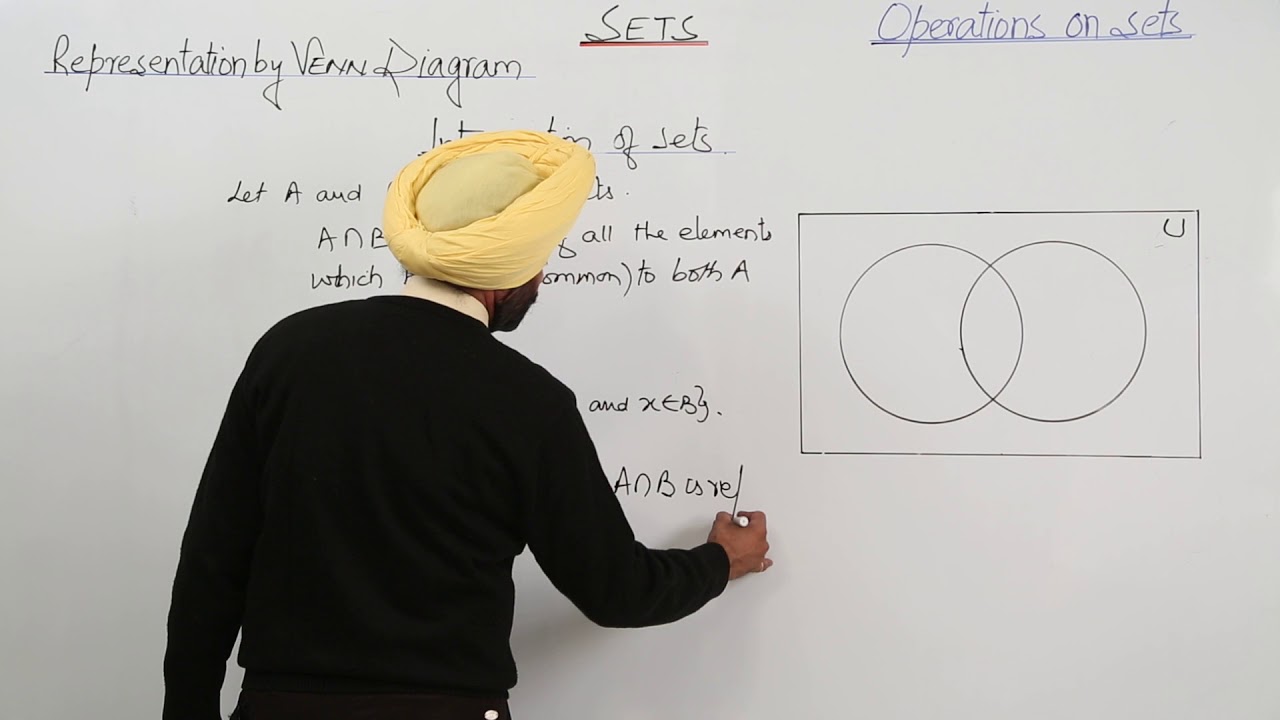 SETS
Operations on sets
Representation by VENN Diagram
of sets
Let A and
A∩B all the elements
which ommon) to both A
and x∈B}.
A∩B is rep
U